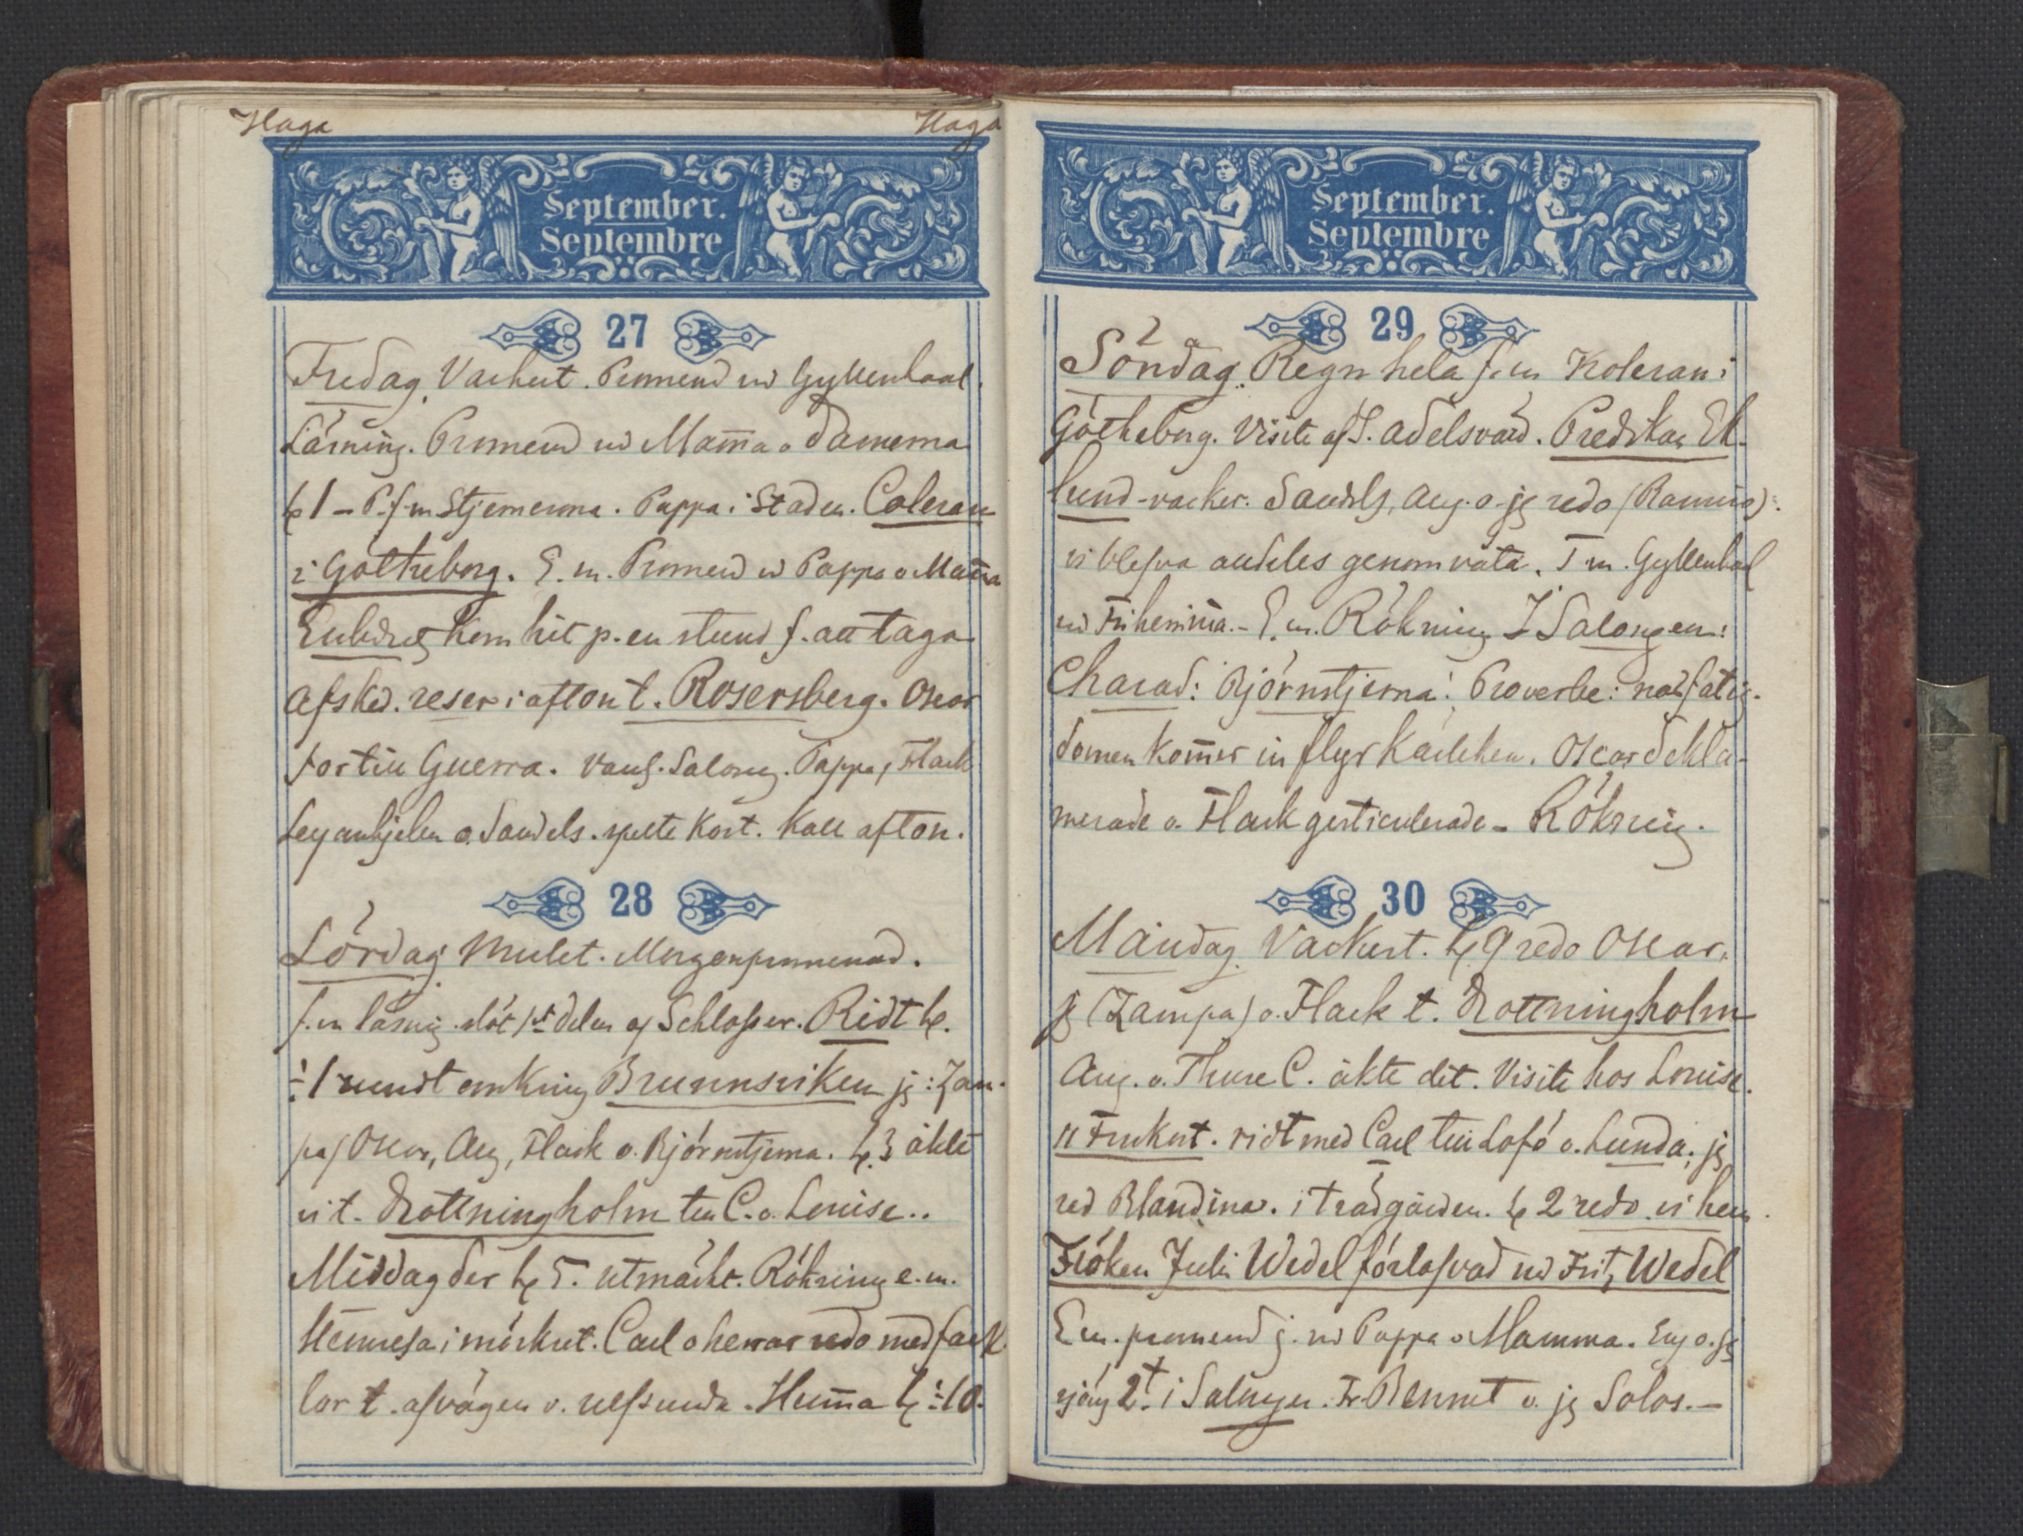 Haga
Haga
September.
Septembre
27
Fredag. Vackert. Promend m Gyllenhaal.
Läsning. Promend md Mam̄a o damerna
kl 1 – P. f m Stjernerna. Pappa i Staden. Coleran
i Götheborg. E. m. Promend m Pappa o Mam̄a
Kom hit p. en stund f. att taga
afsked. reser i afton t. Rosersberg. Oscar
for till Guerra. Vanl. Salong. Pappa, Flack
Leyonhjelm o. Sandels. spelte Kort. Kall afton.
28
Lördag Mulet. Morgonpromenad.
f. m läsnig. slöt 1st delen af Schlosser. Ridt kl.
÷ 1 rundt omkring Brunnsviken jg: Zam-
pa) Oscar, Aug, Flack o. Björnstjerna. kl. 3 åkte
vi t. Drottningholm till C. o. Louise..
Middag der kl 5. utmärkt. Rökning e. m.
Hemresa i mörkret. Carl o herrar redo med fack
lor t. afvägen v. Ulfsunda. Hem̄a kl ÷ 10.
September.
Septembre
29
Söndag. Regn hela f. m Koleran i
Götheborg. Visite af Adelsvärd. Predikan Ek-
lund - vacker. Sandels, Aug. o. jg redo (Ramiro):
vi blefvo alldeles genomvåta. T m. Gyllenhaal
md Friherrin̄a. – E. m. Rökning I Salongen:
Charad: Björnstjerna: Proverbe: när fatig-
domen kom̄er in flyr Kärleken. Oscar dekla-
merade o. Flack gesticulerade – Rökning.
30
Måndag. Vackert. kl 9 redo Oscar,
jg (Zampa) o. Flack t. Drottningholm
Aug. o. Thure C. åkte dit. Visite hos Louise.
11 Frukost. ridt med Carl till Lofö o. Lunda; jg
red Blandina. i trädgården. kl 2 redo vi hem.
Fröken Juli Wedel förlofvad md Fritz Wedel
E m. promend j. md Pappa o Mamma. Eug o. jg
sjöng 2t. i Salongen. Fr Bennet o. jg Solos. –